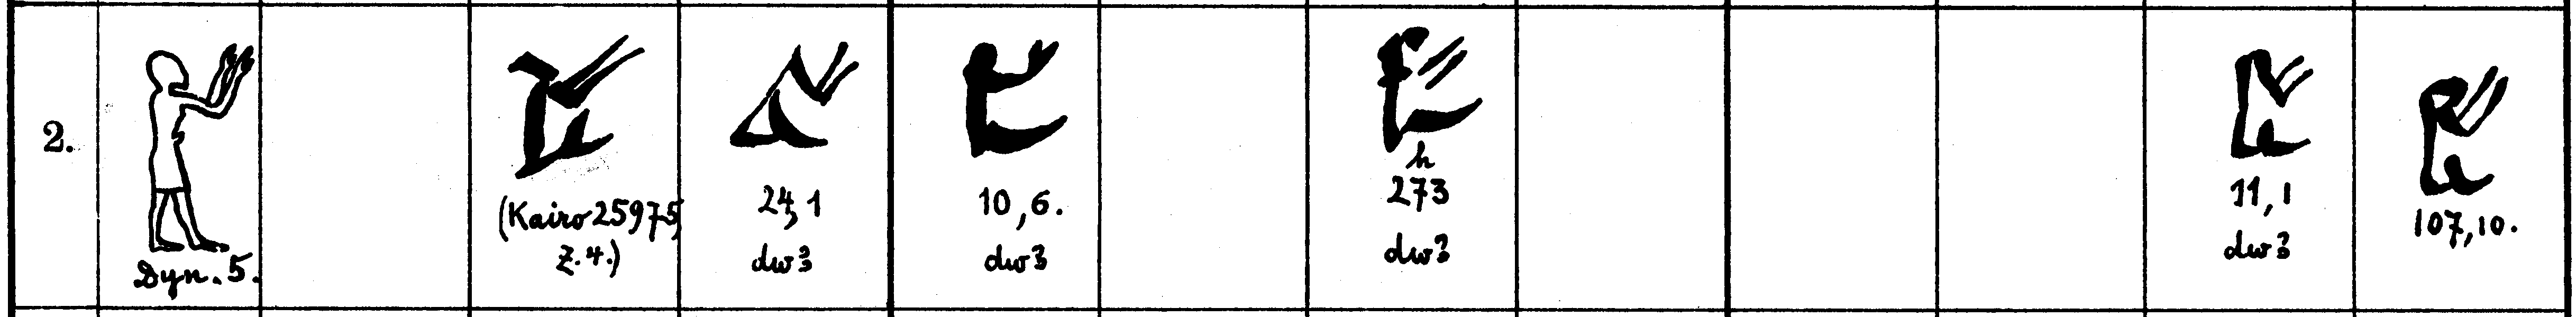 2.
Dyn. 5.
(Kairo 25975, Z. 4.)
24,1
dw3
10,6.
dw3
h
273
dw3
11,1
dw3
107,10.